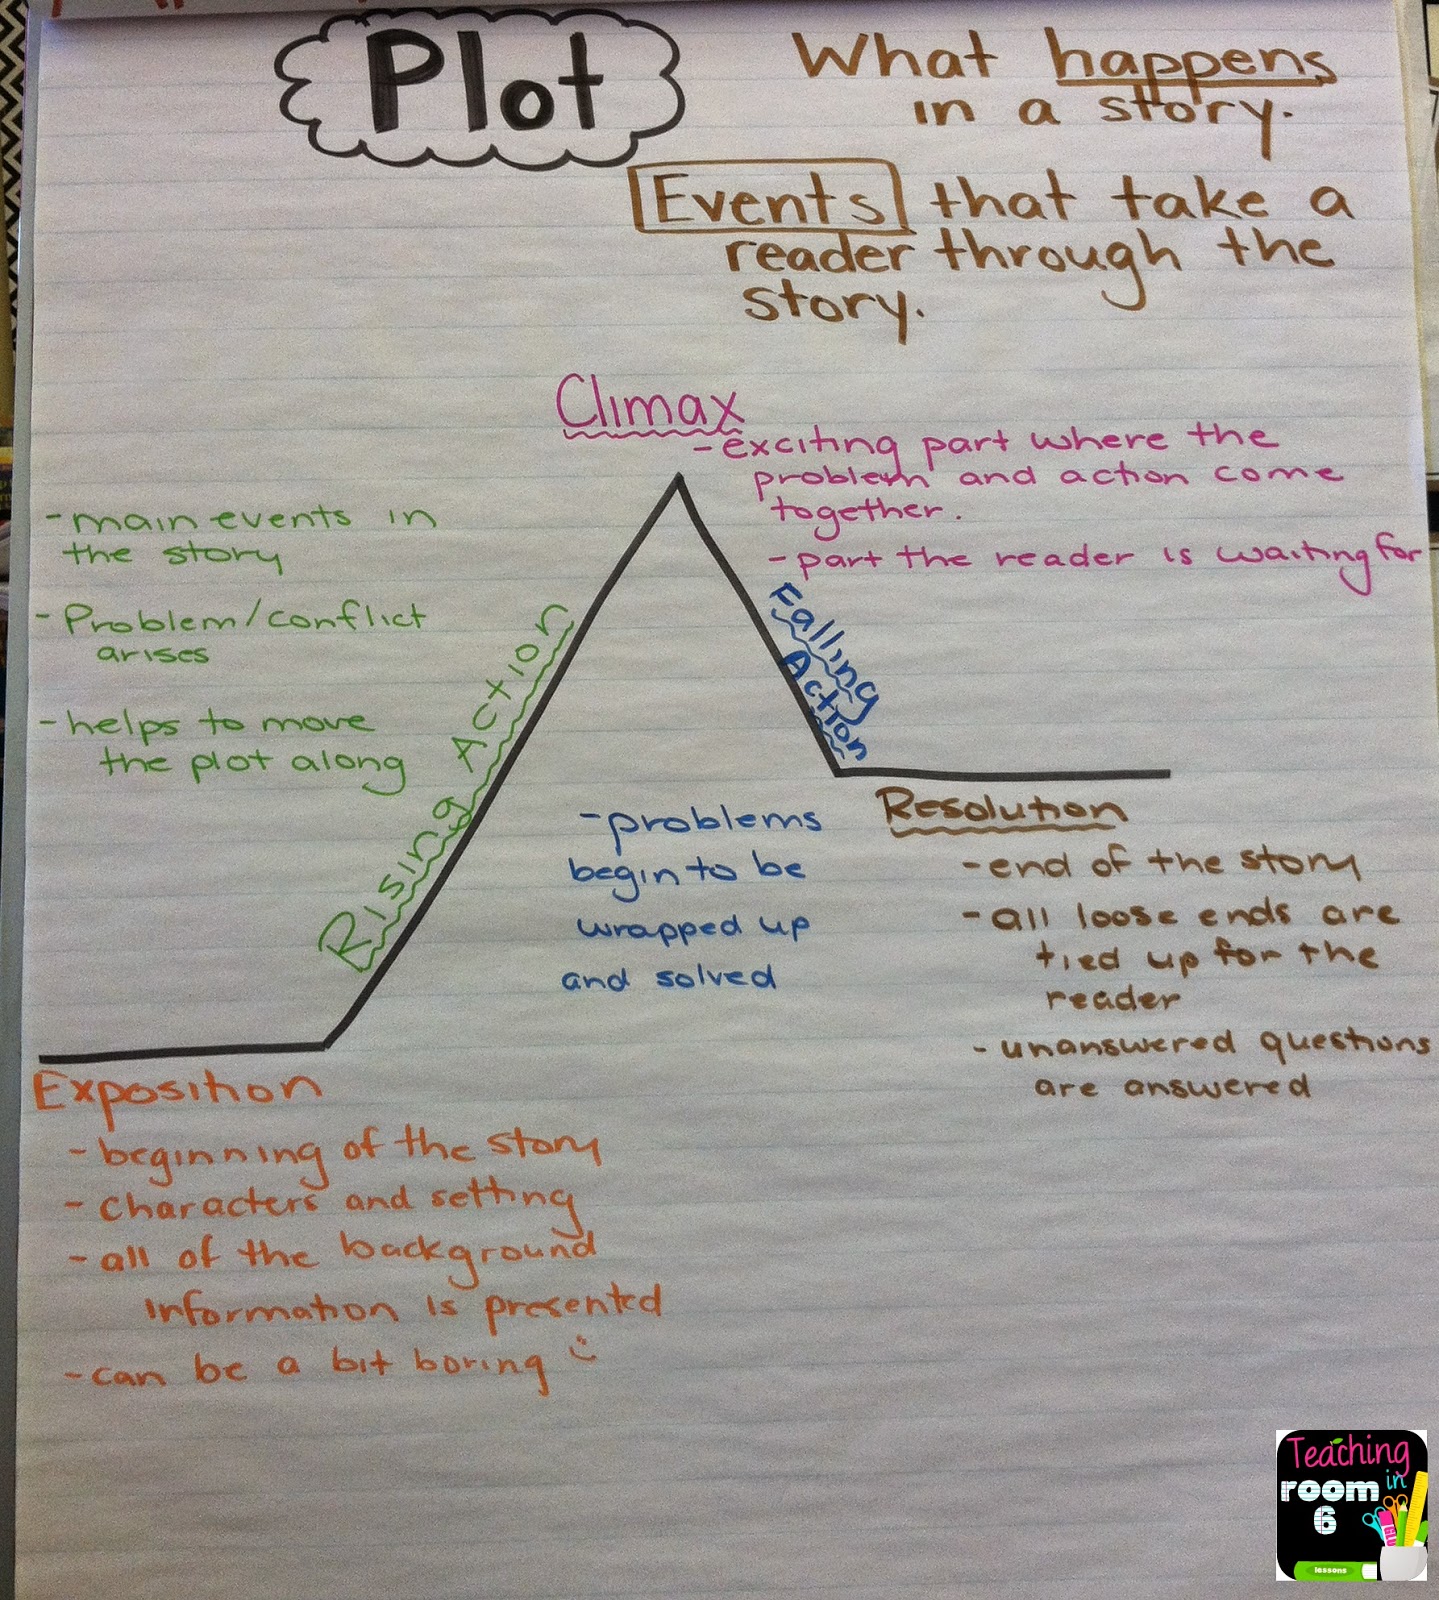 Plot
What happens
in a story.
Events that take a
reader through the
story.
Climax
- exciting part where the
problem and action come
together.
- part the reader is waiting for
- main events in
the story
- Problem/conflict
arises
- helps to move
the plot along
Rising Action
Falling
Action
- problems
begin to be
wrapped up
and solved
Resolution
- end of the story
- all loose ends are
tied up for the
reader
- unanswered questions
are answered
Exposition
- beginning of the story
- characters and setting
- all of the background
information is presented
- can be a bit boring
Teaching
room in
6
lessons